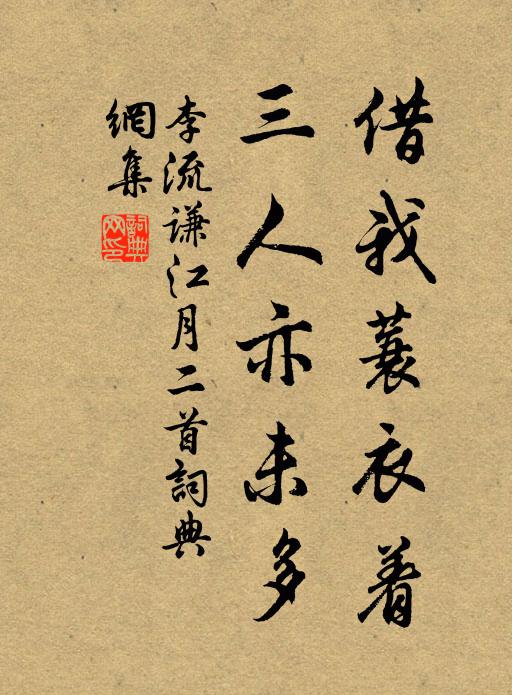 借我蓑衣着
三人亦未多
李流谦江月二首詞典
網集
詞典
网印